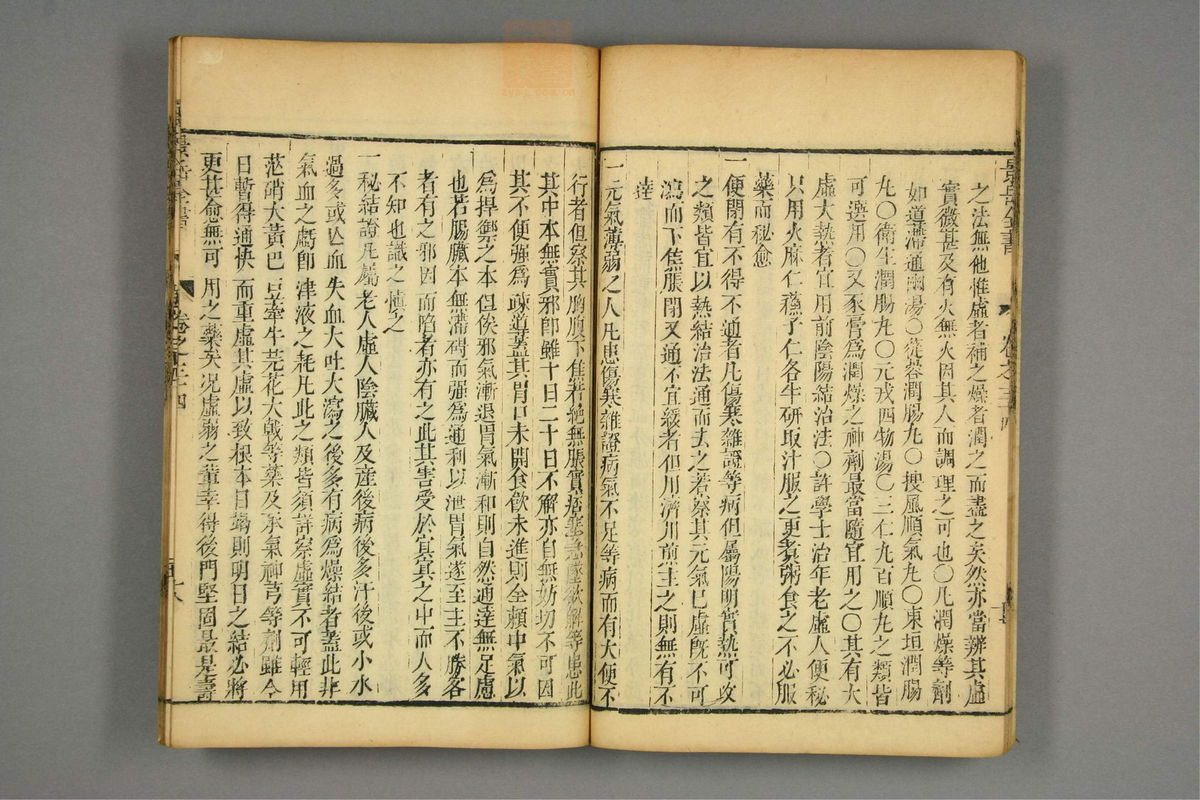 景岳全書
卷之三十四
之法無他惟虛者補之燥者潤之而盡之矣然亦當辨其虛
實微甚及有火無火因其人而調理之可也〇凡潤燥等劑
如導滯通幽湯〇蓯蓉潤腸丸〇搜風順氣丸〇東垣潤腸
丸〇衛生潤腸丸〇元戎四物湯〇三仁丸百順丸之類皆
可選用〇又豕膏爲潤燥之神劑最當隨宜用之〇其有大
虛大熱者宜用前陰陽結治法〇許學士治年老虛人便秘
只用火麻仁蘇子仁各半研取汁服之更煮粥食之不必服
藥而秘愈
一便閉有不得不通者凡傷寒雜證等病但屬陽明實熱可攻
之類皆宜以熱結治法通而去之若察其元氣已虛既不可
瀉而下焦脹閉又通不宜緩者但用濟川煎主之則無有不
達
一元氣薄弱之人凡患傷寒雜證病氣不足等病而有大便不
行者但察其胸腹下焦若絕無脹實痞塞急墜欲解等患此
其中本無實邪卽雖十日二十日不解亦自無妨切不可因
其不便强爲疎導蓋其胃口未開食飲未進則全賴中氣以
爲捍禦之本但俟邪氣漸退胃氣漸和則自然通達無足慮
也若腸臟本無滯碍而强爲通利以泄胃氣遂至主不勝客
者有之邪因而陷者亦有之此其害受於冥冥之中而人多
不知也識之愼之
一秘結證凡屬老人虛人陰臟人及産後病後多汗後或小水
過多或亡血失血大吐大瀉之後多有病爲燥結者蓋此非
氣血之虧卽津液之耗凡此之類皆須詳察虛實不可輕用
芒硝大黃巴豆牽牛芫花大戟等藥及承氣神芎等劑雖今
日暫得通快而重虛其虛以致根本日竭則明日之結必將
更甚愈無可用之藥矣况虛弱之輩幸得後門堅固最是壽
卷之三十四